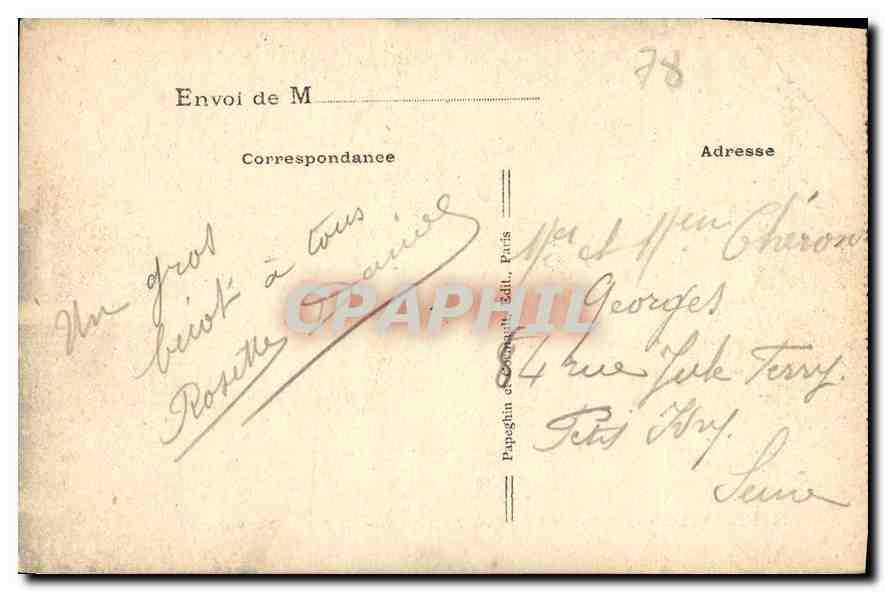 78
Envoi de M
Correspondance
Un gros
bécot à tous
Rosette Daniel
Papeghin et Édit., Paris
Adresse
et Chéron
Georges
84 rue Jule Ferry.
Petit Ivry.
Seine
CPAPHIL